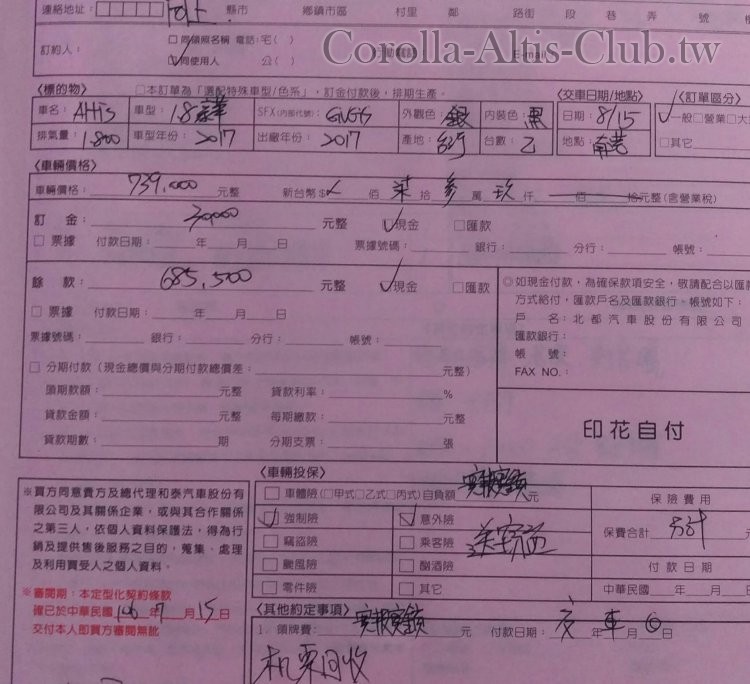 連絡地址： 同上 縣市 鄉鎮市區 村里 鄰 路街 段 巷 弄 號
訂約人： □同領照名稱 電話：宅( ) 行動電話 E-mail
☑同使用人 公( )
Corolla-Altis-Club.tw
〈標的物〉 □本訂單為「選配特殊車型/色系」，訂金付款後，排期生產。 〈交車日期/地點〉 〈訂單區分〉
車名：Altis 車型：1.8豪華 SFX(內部代號)： 外觀色 銀 內裝色：黑 日期：8/15 ☑一般□營業□大
排氣量：1800 車型年份：2017 出廠年份：2017 產地： 台數：乙 地點： □其它
〈車輛價格〉
車輛價格： 739,000 元整 新台幣$ 佰 柒 拾 參 萬 玖 仟 佰 拾元整(含營業稅)
訂 金： 30,000 元整 ☑現金 □匯款
□票據 付款日期： 年 月 日 票據號碼： 銀行： 分行： 帳號：
餘 款： 685,500 元整 ☑現金 □匯款
□票據 付款日期： 年 月 日
票據號碼： 銀行： 分行： 帳號：
□分期付款(現金總價與分期付款總價差： 元整)
頭期款額： 元整 貸款利率： %
貸款金額： 元整 每期繳款： 元整
貸款期數： 期 分期支票： 張
◎如現金付款，為確保款項安全，敬請配合以匯款
方式給付，匯款戶名及匯款銀行、帳號如下：
戶 名：北都汽車股份有限公司
匯款銀行：
帳 號：
FAX NO.：
印花自付
※買方同意貴方及總代理和泰汽車股份有
限公司及其關係企業，或與其合作關係
之第三人，依個人資料保護法，得為行
銷及提供售後服務之目的，蒐集、處理
及利用買受人之個人資料。
※審閱期：本定型化契約條款
確已於中華民國106年7月15日
交付本人即買方審閱無訛
〈車輛投保〉
□車體險(□甲式□乙式□丙式)自負額 實報實銷 元 保險費用
☑強制險 ☑意外險 保費合計 元
□竊盜險 □乘客險
□颱風險 □酗酒險 付款日期
□零件險 □其它 中華民國 年 月 日
〈其他約定事項〉
1. 領牌費： 實報實銷 元 付款日期： 交 年 車 月 日
機票回收